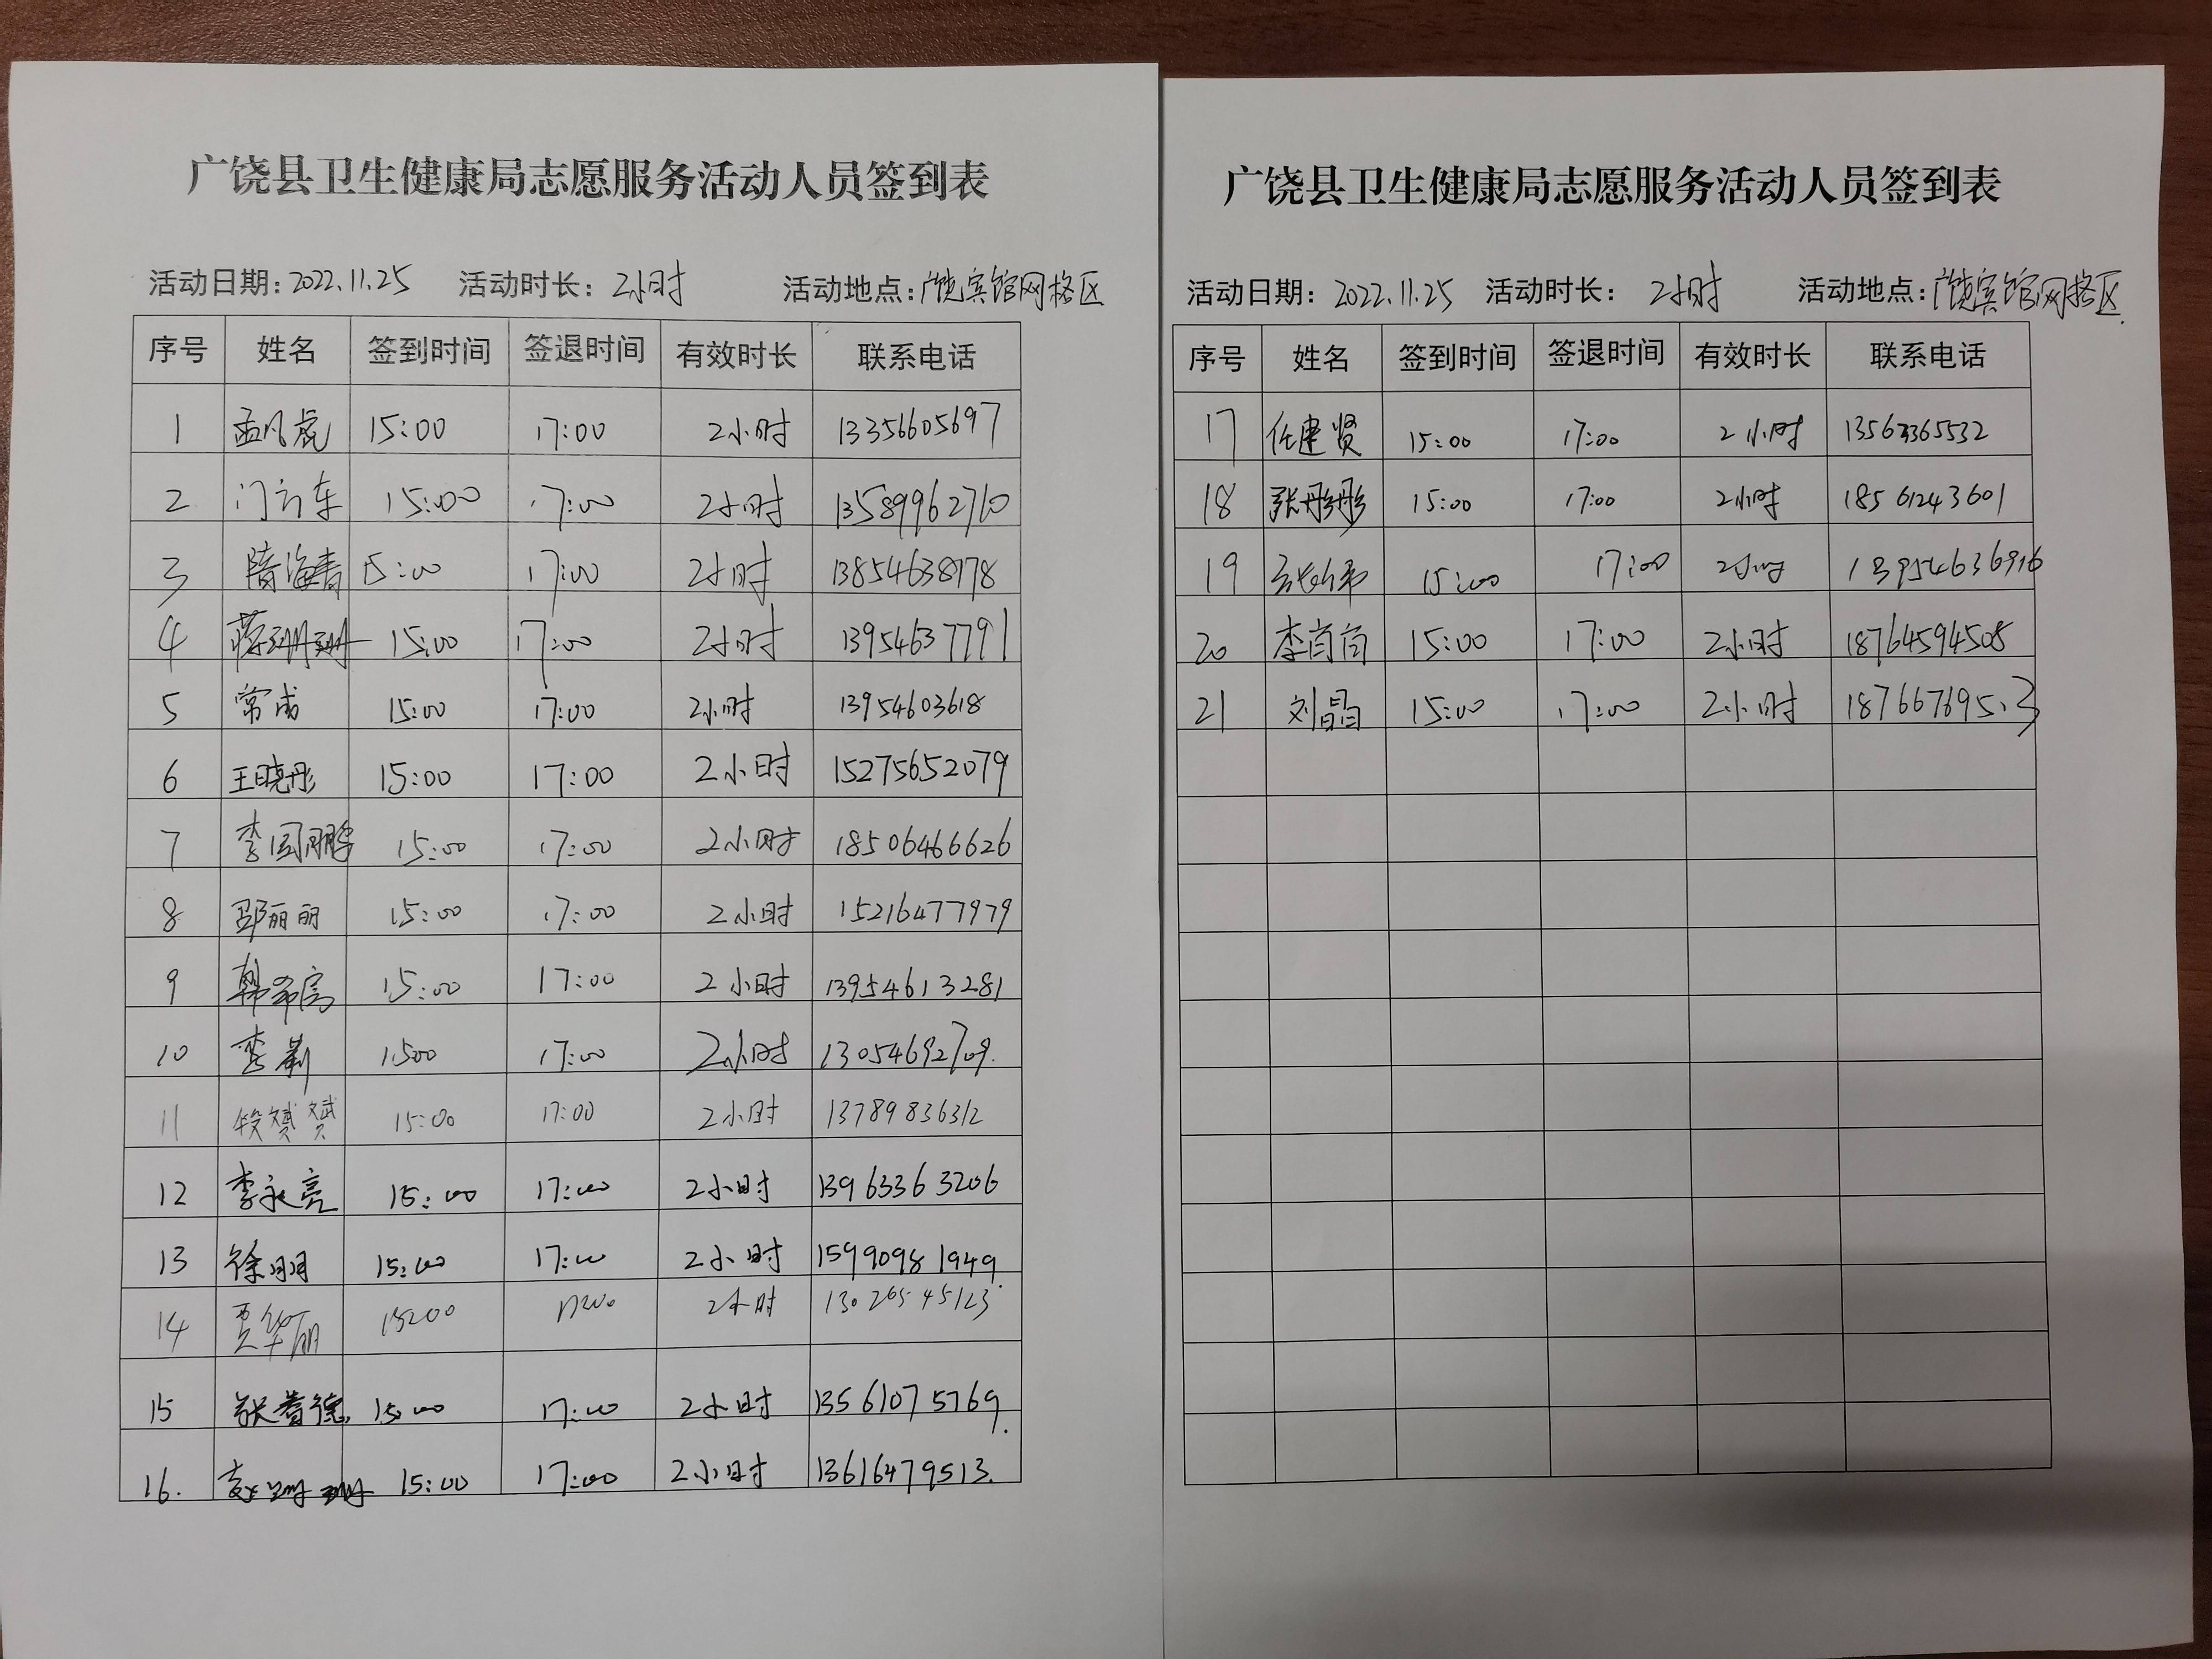 广饶县卫生健康局志愿服务活动人员签到表
活动日期：2022.11.25 活动时长：2小时 活动地点：广饶宾馆网格区
序号 姓名 签到时间 签退时间 有效时长 联系电话
1 孟凡虎 15:00 17:00 2小时 13356605697
2 门方车 15:00 17:00 2小时 13589962710
3 隋海青 15:00 17:00 2小时 13854638178
4 蒋珊珊 15:00 17:00 2小时 13954637791
5 常成 15:00 17:00 2小时 13954603618
6 王晓彤 15:00 17:00 2小时 15275652079
7 李国鹏 15:00 17:00 2小时 18506466626
8 邵丽丽 15:00 17:00 2小时 15216477979
9 韩希富 15:00 17:00 2小时 13954613281
10 15:00 17:00 2小时 13054692709.
11 段赟赟 15:00 17:00 2小时 13789836312
12 李永亮 15:00 17:00 2小时 13963363206
13 徐朋 15:00 17:00 2小时 15990981949.
14 贾华丽 15:00 17:00 2小时 13026545123
15 15:00 17:00 2小时 13561075769.
16. 15:00 17:00 2小时 13616479513.
广饶县卫生健康局志愿服务活动人员签到表
活动日期：2022.11.25 活动时长：2小时 活动地点：广饶宾馆网格区.
序号 姓名 签到时间 签退时间 有效时长 联系电话
17 任建贤 15:00 17:00 2小时 13563365532
18 张彤彤 15:00 17:00 2小时 18561243601
19 15:00 17:00 2小时 13954636916
20 李肖肖 15:00 17:00 2小时 18764594508
21 刘晶 15:00 17:00 2小时